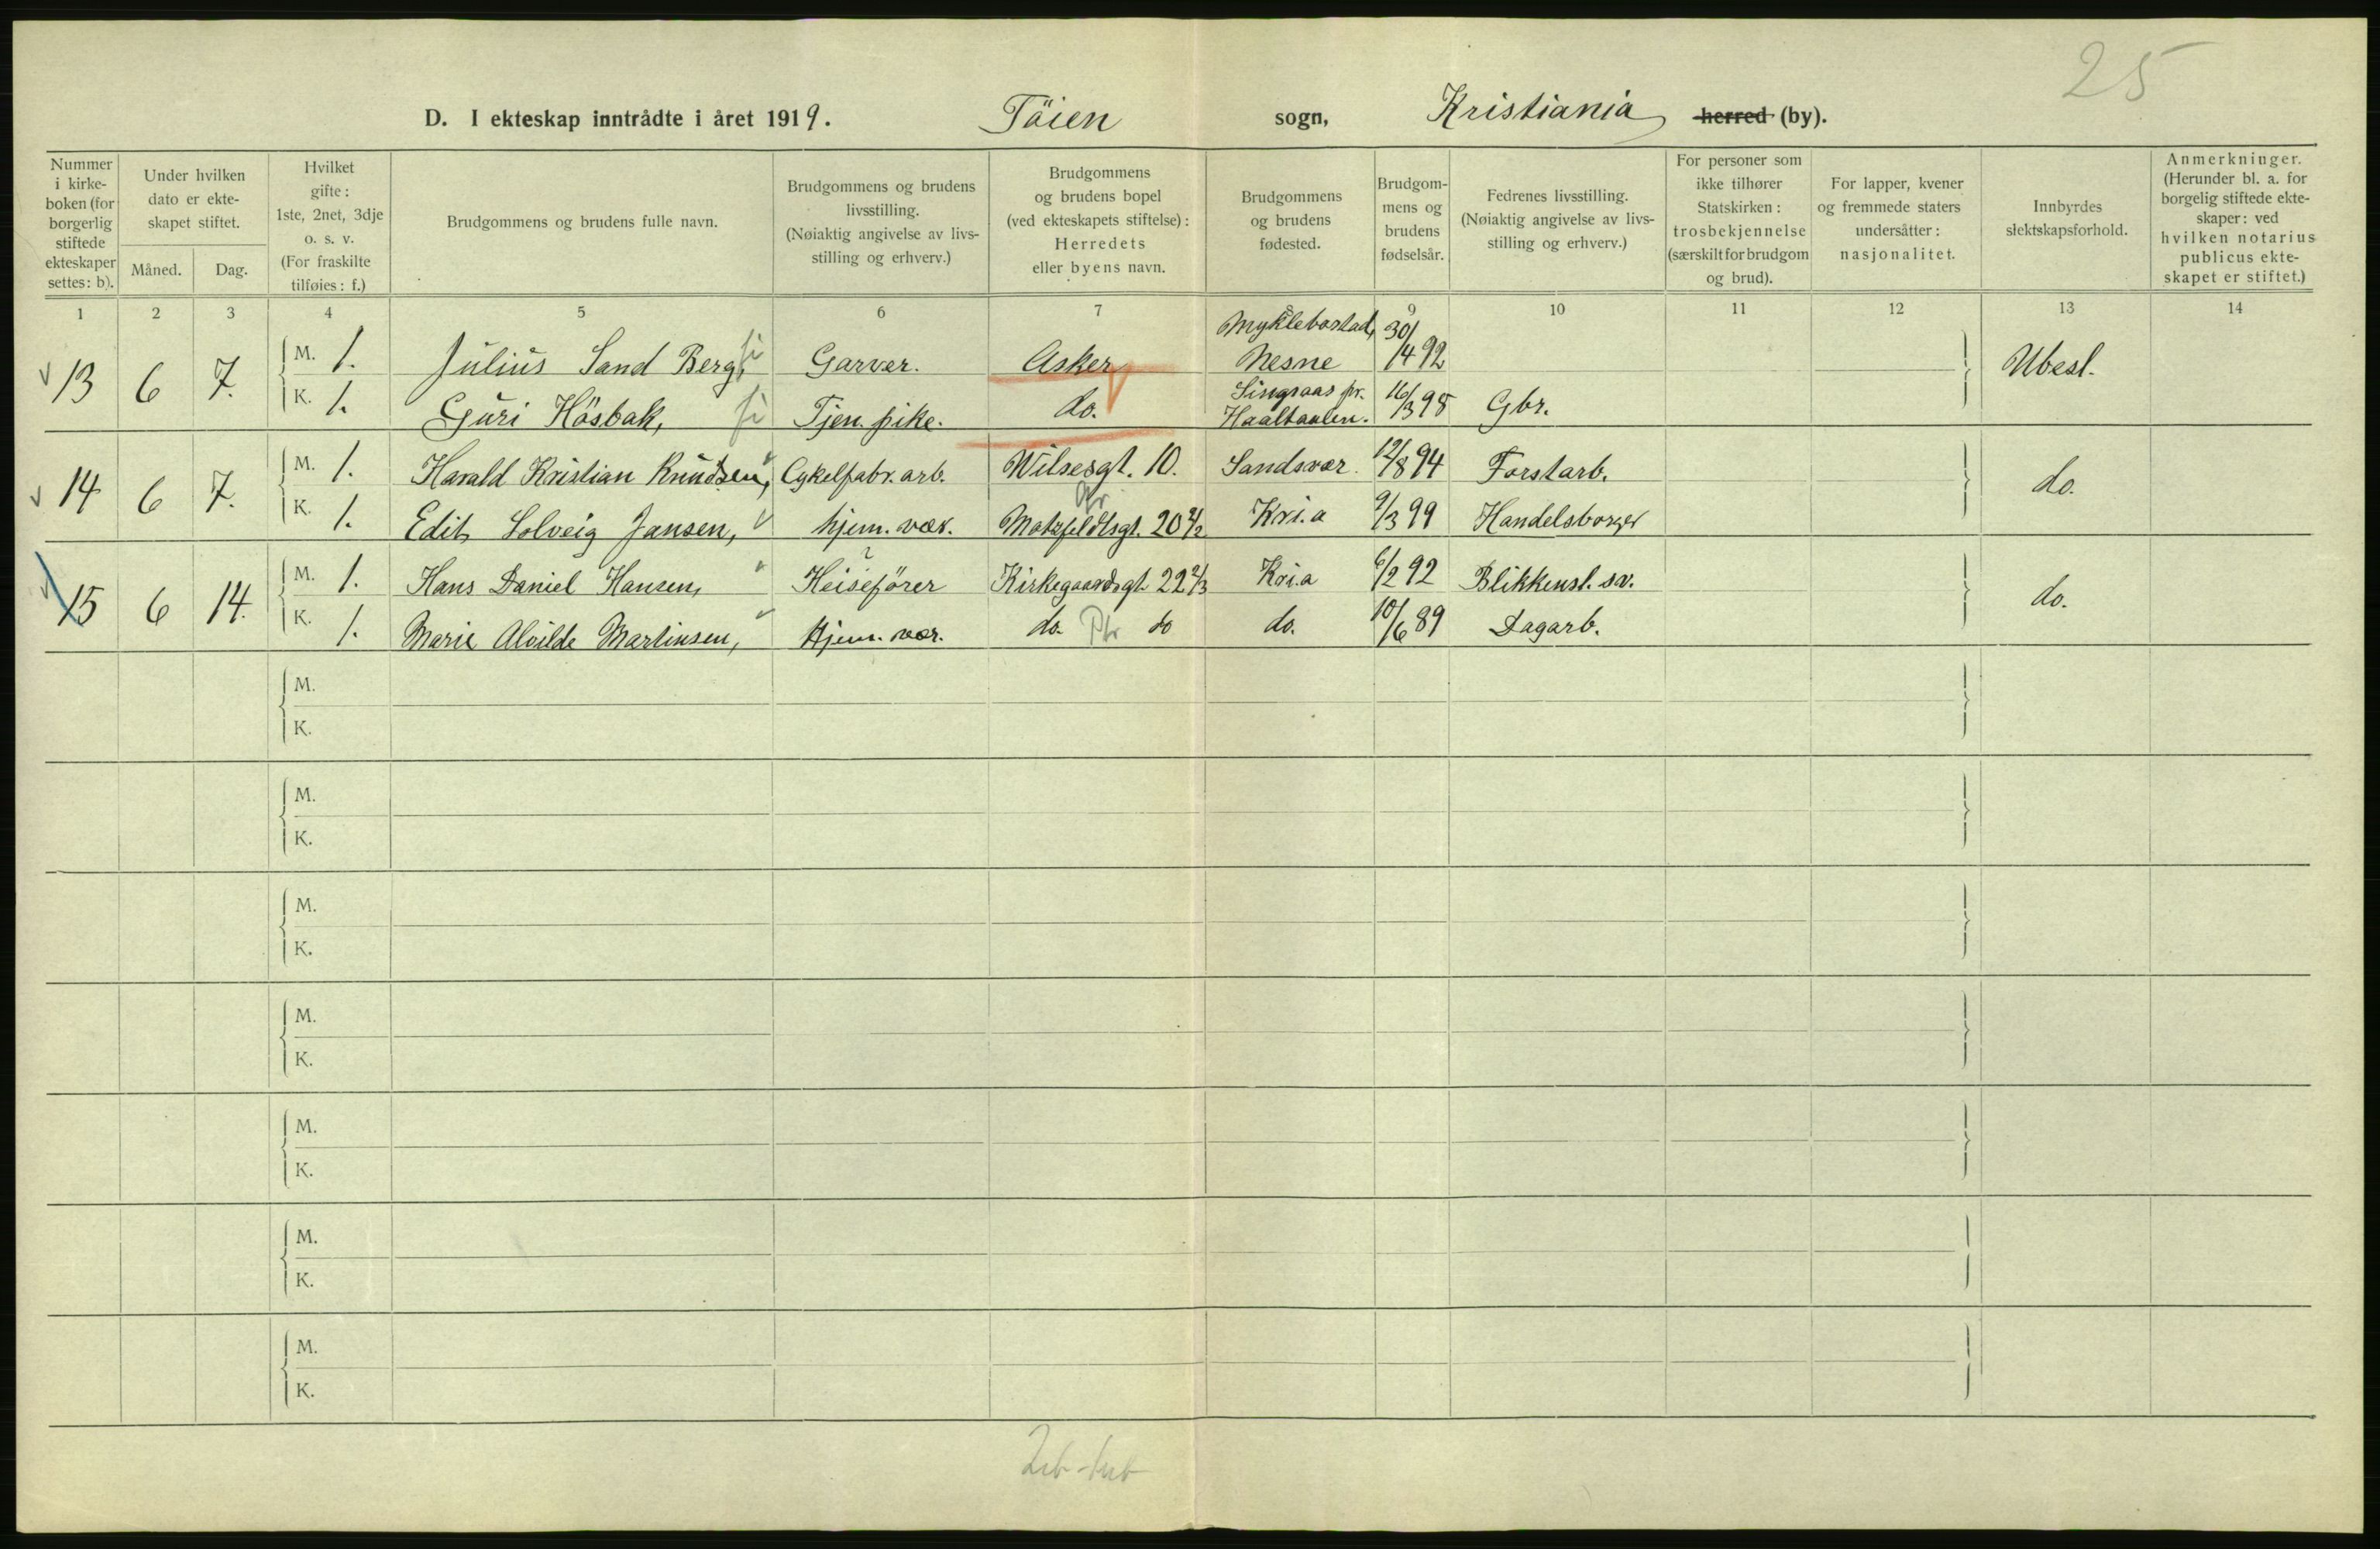 25
D. I ekteskap inntrådte i året 1919. Töien sogn, Kristiania herred (by).
Nummer i kirke- boken (for borgerlig stiftede ekteskaper settes: b).
Under hvilken dato er ekte- skapet stiftet.
Måned. Dag.
Hvilket gifte: 1ste, 2net, 3dje o. s. v. (For fraskilte tilføies: f.)
Brudgommens og brudens fulle navn.
Brudgommens og brudens livsstilling. (Nøiaktig angivelse av livs- stilling og erhverv.)
Brudgommens og brudens bopel (ved ekteskapets stiftelse): Herredets eller byens navn.
Brudgommens og brudens fødested.
Brudgom- mens og brudens fødselsår.
Fedrenes livsstilling. (Nøiaktig angivelse av livs- stilling og erhverv.)
For personer som ikke tilhører Statskirken: trosbekjennelse (særskilt for brudgom og brud).
For lapper, kvener og fremmede staters undersåtter: nasjonalitet.
Innbyrdes slektskapsforhold.
Anmerkninger. (Herunder bl. a. for borgelig stiftede ekte- skaper: ved hvilken notarius publicus ekte- skapet er stiftet.)
1 2 3 4 5 6 7 8 9 10 11 12 13 14
13 6 7. M. 1. Julius Sand Berg, Garver. Asker Myklebostad, Nesne 30/14 92 Ubesl.
K. 1. Guri Hösbak, Tjen. pike. do. Singsaas pr. Haaltaalen. 16/3 98 Gbr.
14 6 7. M. 1. Harald Kristian Knudsen, Cykelfabr. arb. Wilsesgt. 10. Sandsvær. 12/8 94 Forstarb. do.
K. 1. Edit Solveig Jansen, hjem. vær. Motzfeldtsgt. 20 4/2 Kri.a 9/3 99 Handelsborger
15 6 14. M. 1. Hans Daniel Hansen, Heisefører Kirkegaardsgt. 22 2/3 Kri.a 6/2 92 Blikkensl. sv. do.
K. 1. Marie Alvilde Martinsen, Hjem. vær. do. do do. 10/6 89 Dagarb.
M.
K.
M.
K.
M.
K.
M.
K.
M.
K.
M.
K.
M.
K.